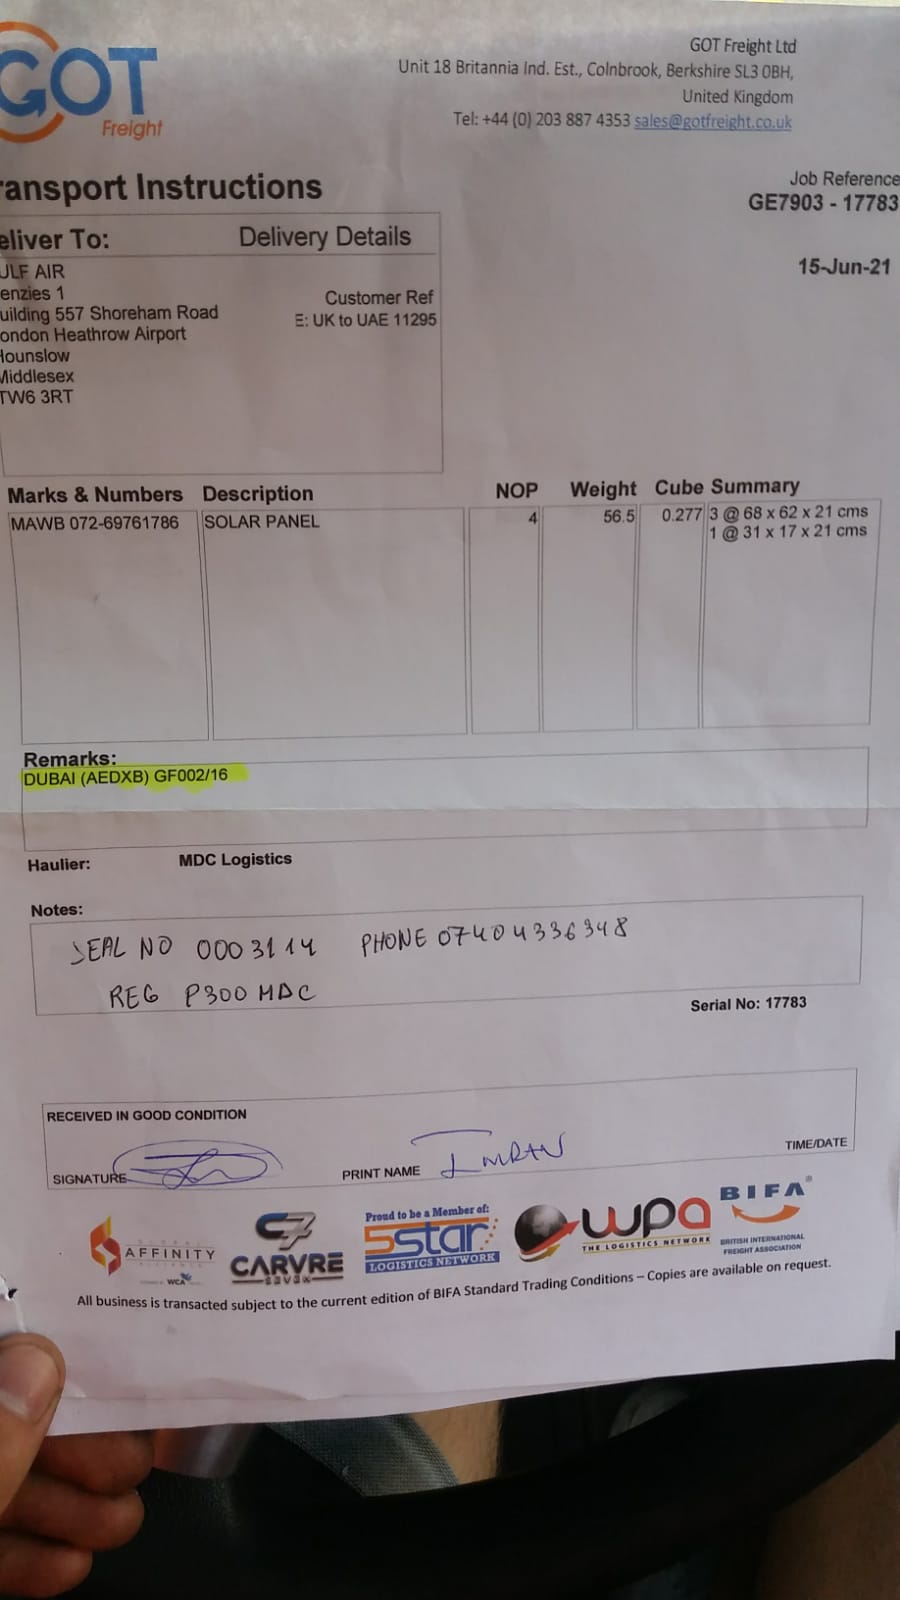 GOT
Freight
GOT Freight Ltd
Unit 18 Britannia Ind. Est., Colnbrook, Berkshire SL3 0BH,
United Kingdom
Tel: +44 (0) 203 887 4353 sales@gotfreight.co.uk
ransport Instructions
Job Reference
GE7903 - 17783
15-Jun-21
eliver To: Delivery Details
ULF AIR
enzies 1
uilding 557 Shoreham Road
ondon Heathrow Airport
Hounslow
Middlesex
TW6 3RT
Customer Ref
E: UK to UAE 11295
Marks & Numbers Description NOP Weight Cube Summary
MAWB 072-69761786 SOLAR PANEL 4 56.5 0.277 3 @ 68 x 62 x 21 cms
1 @ 31 x 17 x 21 cms
Remarks:
DUBAI (AEDXB) GF002/16
Haulier: MDC Logistics
Notes:
SEAL NO 0003114 PHONE 07404336348
REG P300 MDC
Serial No: 17783
RECEIVED IN GOOD CONDITION
SIGNATURE PRINT NAME IMRAN TIME/DATE
AFFINITY
WCA
C7
CARVRE
SEVEN
Proud to be a Member of:
5star
LOGISTICS NETWORK
wpa
THE LOGISTICS NETWORK
BIFA
BRITISH INTERNATIONAL
FREIGHT ASSOCIATION
All business is transacted subject to the current edition of BIFA Standard Trading Conditions – Copies are available on request.